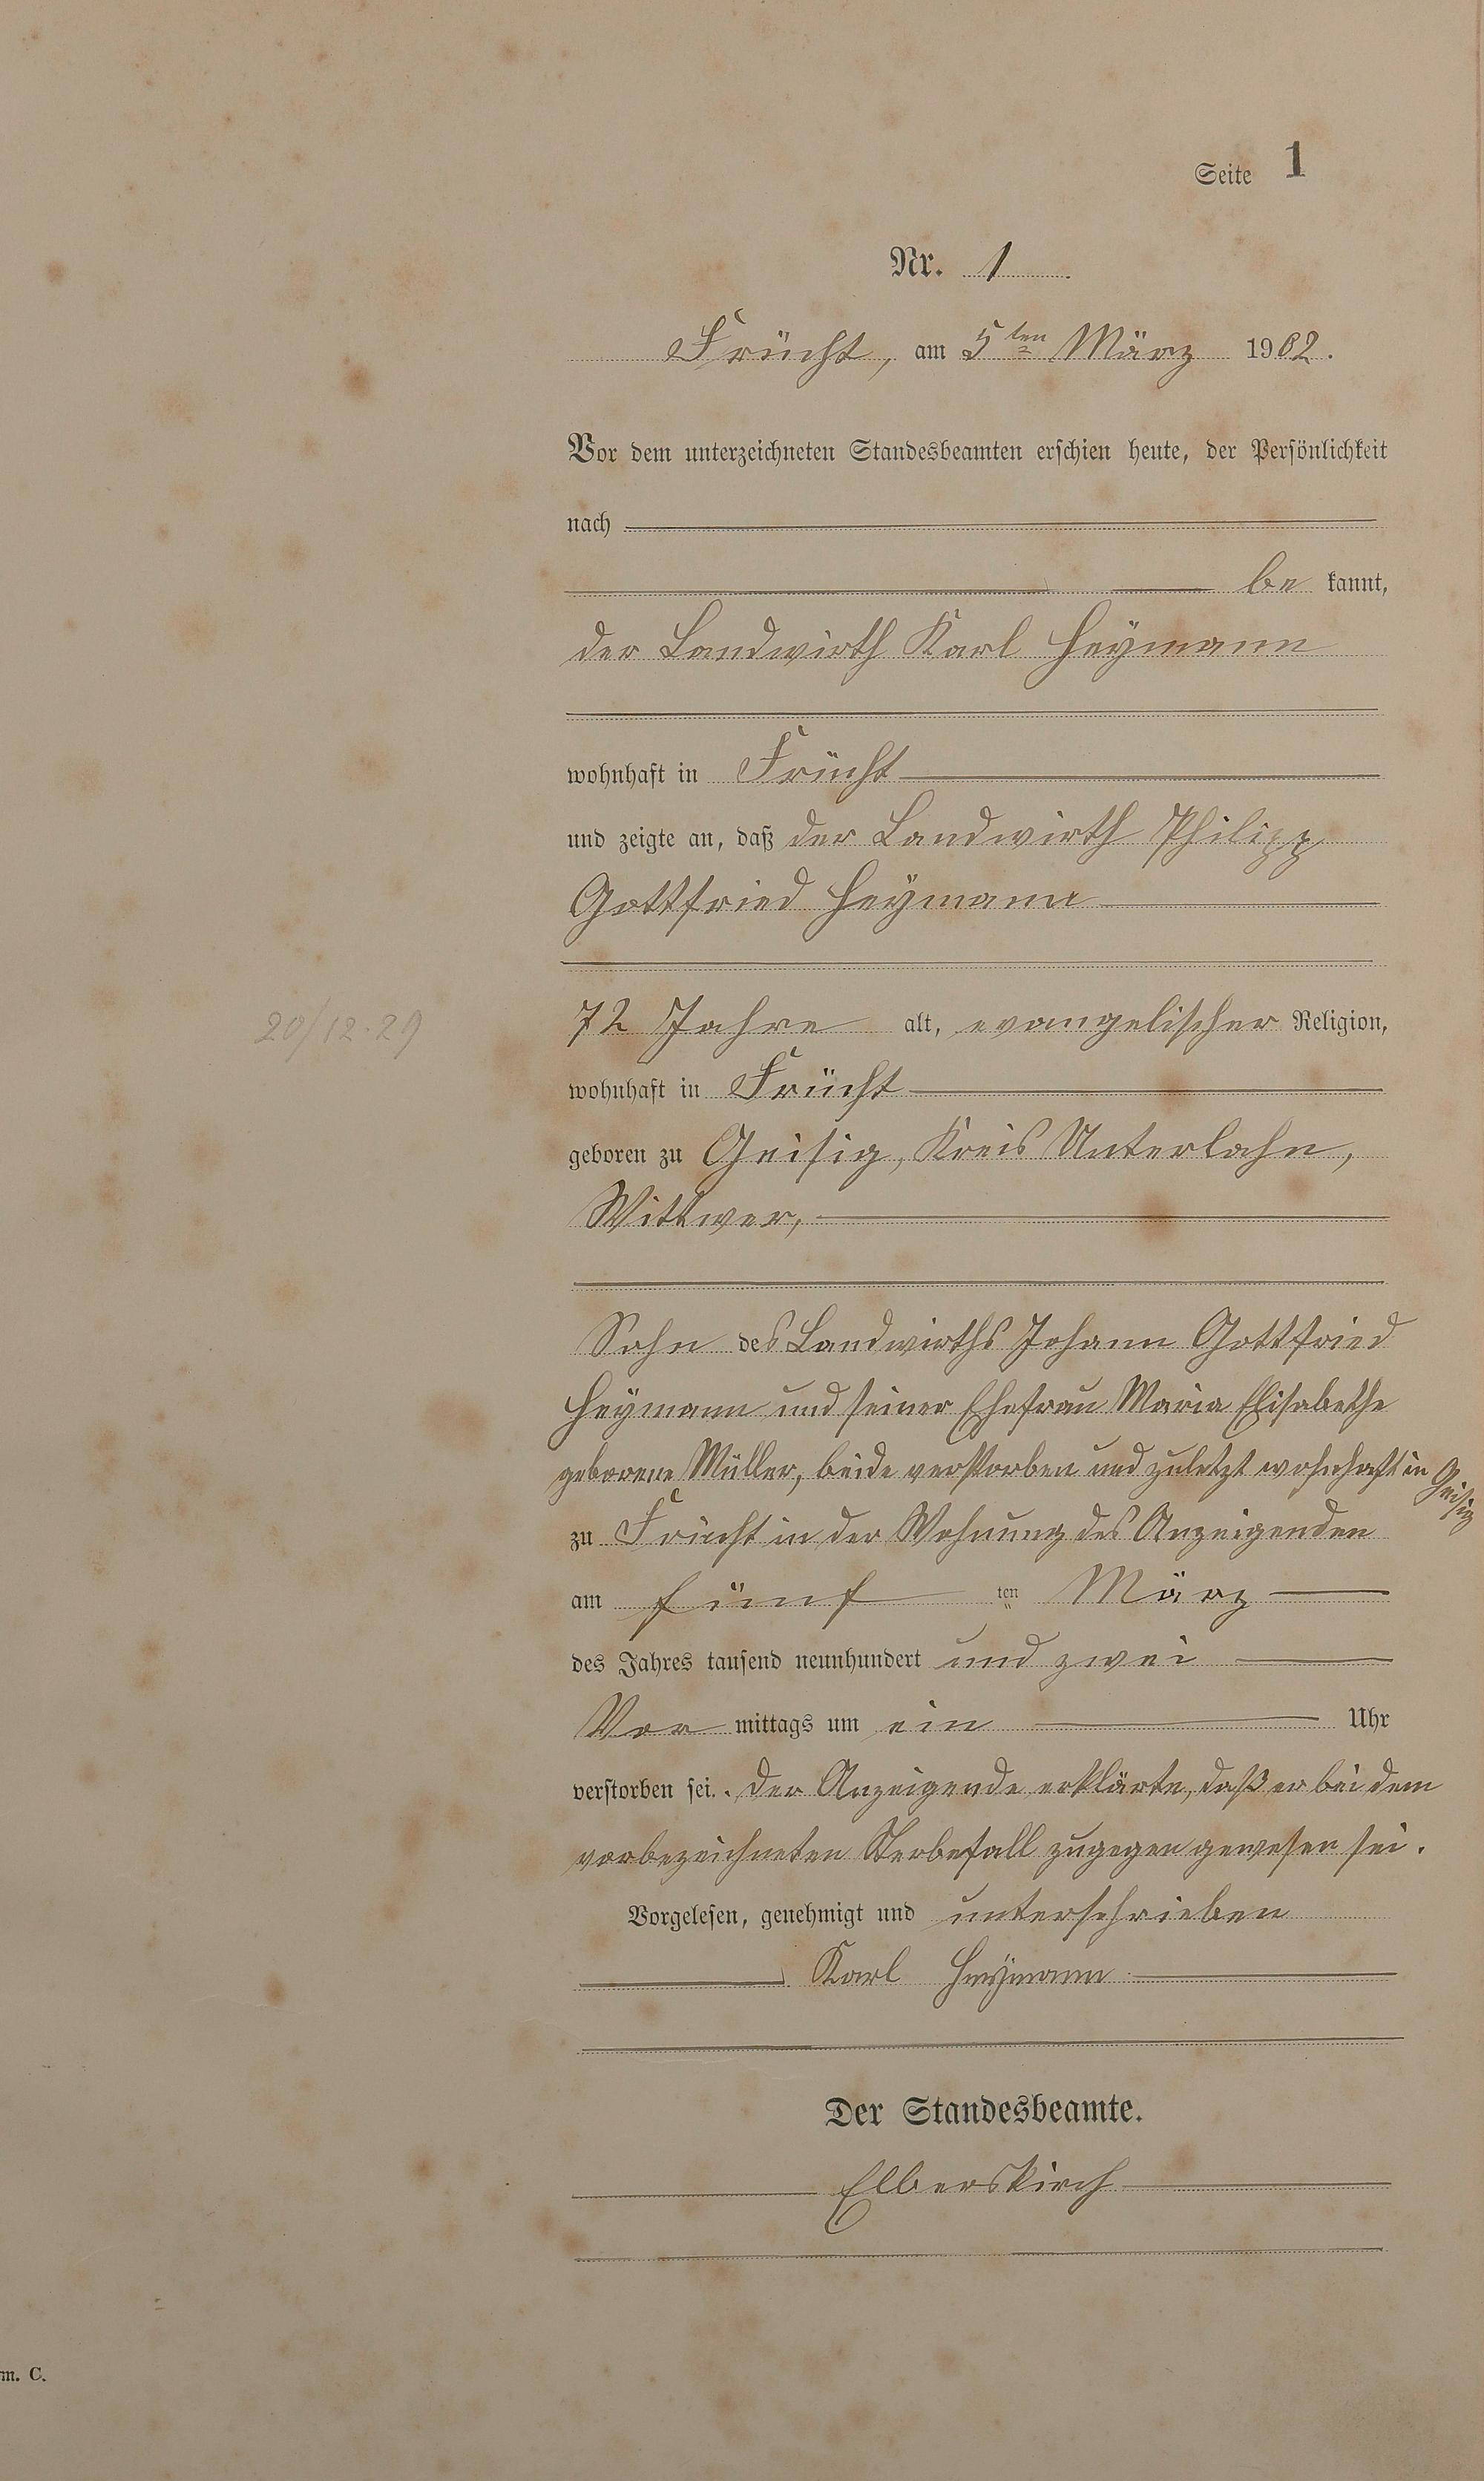 Seite 1
Nr. 1
Frücht, am 5ten März 1902.
Vor dem unterzeichneten Standesbeamten erschien heute, der Persönlichkeit
nach
be kannt,
der Landwirth Karl Heymann
wohnhaft in Frücht
und zeigte an, daß der Landwirth Philipp
Gottfried Heymann
20/12.29
72 Jahre alt, evangelischer Religion,
wohnhaft in Frücht
geboren zu Geisig, Kreis Unterlahn,
Wittwer,
Sohn des Landwirths Johann Gottfried
Heymann und seiner Ehefrau Maria Elisabethe
geborene Müller, beide verstorben und zuletzt wohnhaft in Geisig
zu Frücht in der Wohnung des Anzeigenden
am fünf ten März
des Jahres tausend neunhundert und zwei
Vor mittags um ein Uhr
verstorben sei. Der Anzeigende erklärte, daß er bei dem
vorbezeichneten Sterbefall zugegen gewesen sei.
Vorgelesen, genehmigt und unterschrieben
Karl Heymann
Der Standesbeamte.
Elberskirch
m. C.